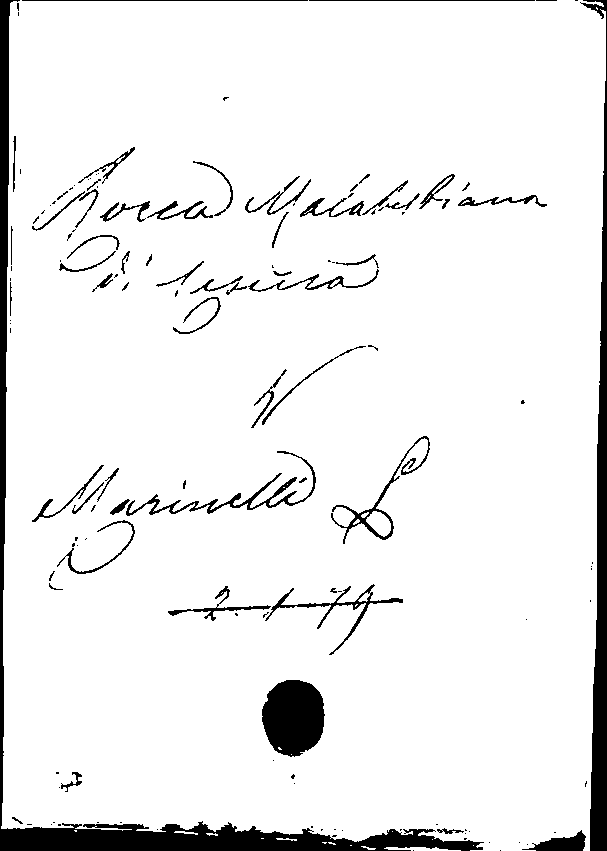 Rocca Malatestiana
di Cesena
V
Marinelli L
2.1.79